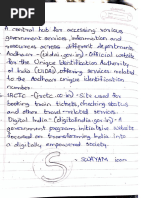 A central hub for accessing various
government services, information and
resources across different departments.
Aadhaar - (uidai.gov.in) - Official website
for the Unique Identification Authority
of India (UIDAI) offering services related
to the Aadhaar unique identification
number.
IRCTC - (irctc.co.in) - Site used for
booking train tickets, checking status
and other travel-related services.
Digital India - (digitalindia.gov.in) - A
government program initiative website
focused on transforming India into
a digitally empowered society.
S
- SORYAM